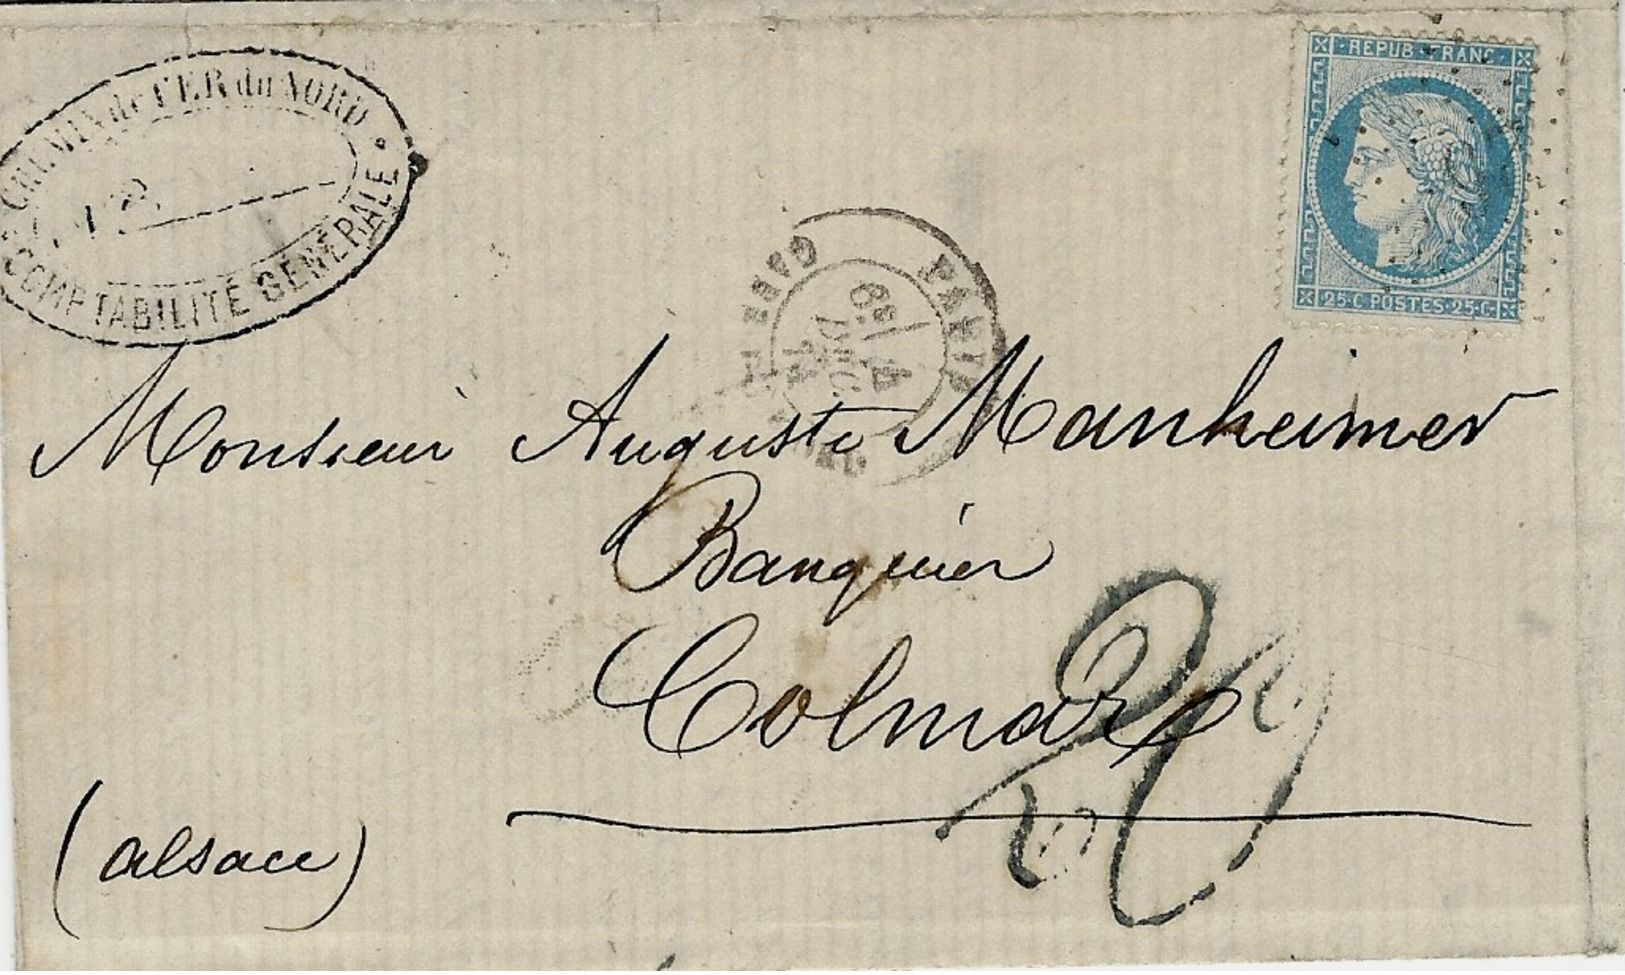 CHEMIN de FER du NORD
COMPTABILITÉ GÉNÉRALE
REPUB FRANC
25 C POSTES 25 C
PARIS
GARE
6E
4
DEC
71
Monsieur Auguste Manheimer
Banquier
Colmar
(alsace)